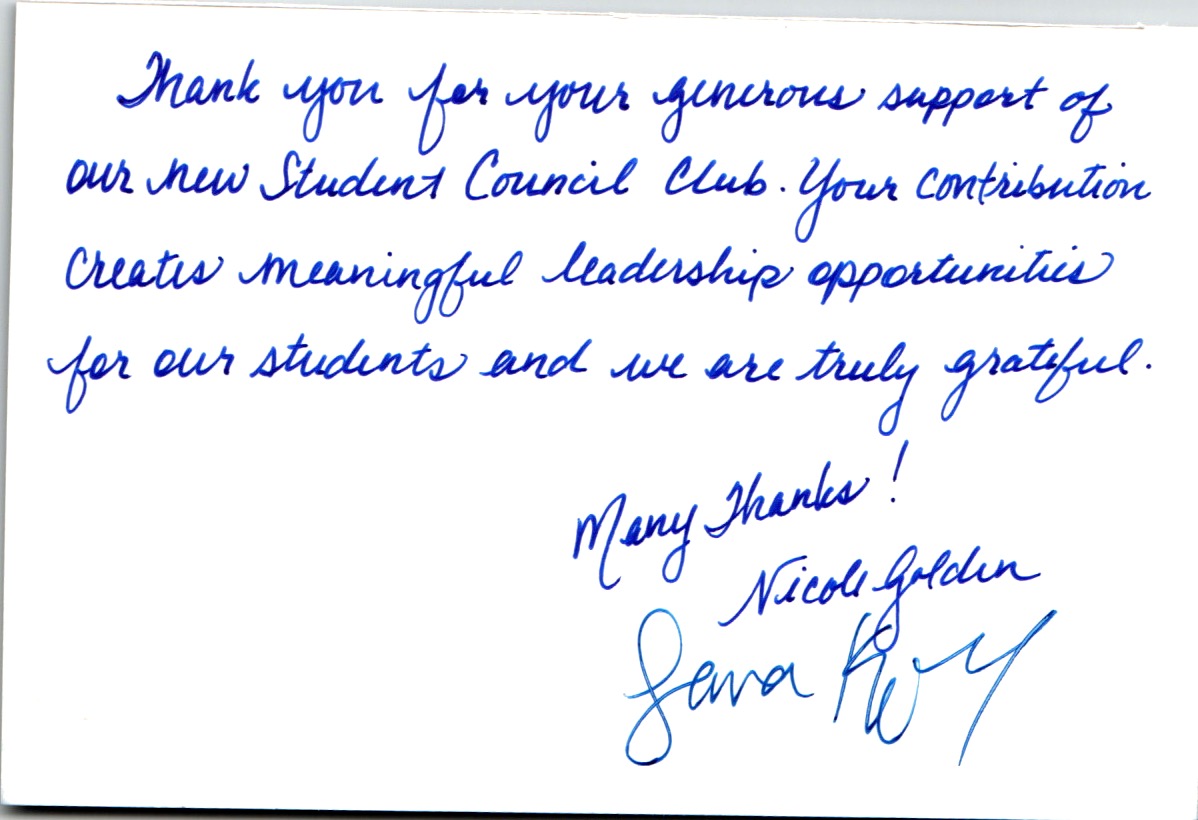 Thank you for your generous support of
our new Student Council Club. Your contribution
creates meaningful leadership opportunities
for our students and we are truly grateful.
Many Thanks!
Nicole Golden